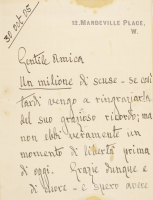 30 Oct 05
12, MANDEVILLE PLACE,
W.
Gentile Amica
Un milione di scuse - se così
tardi vengo a ringraziarla
del suo grazioso ricordo; ma
non ebbi veramente un
momento di libertà prima
di oggi. Grazie dunque e
di cuore - e spero avere